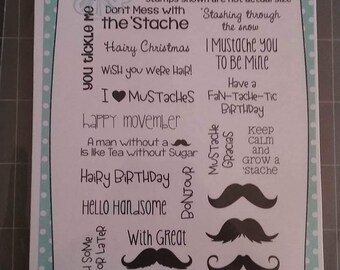 Stamps shown are not actual size
YOU TICKLE ME
Don't Mess with
the 'Stache
'Stashing through
the snow
Hairy Christmas
I Mustache You
To Be Mine
Wish you were Hair!
Have a
Fan-Tache-Tic
Birthday
I ♥ Mustaches
Happy Movember
A man without a
Is like Tea without Sugar
Mustache
Gracias
Keep
calm
and
Grow a
'stache
Hairy Birthday
Bonjour
Hello Handsome
With Great
Some
or Later